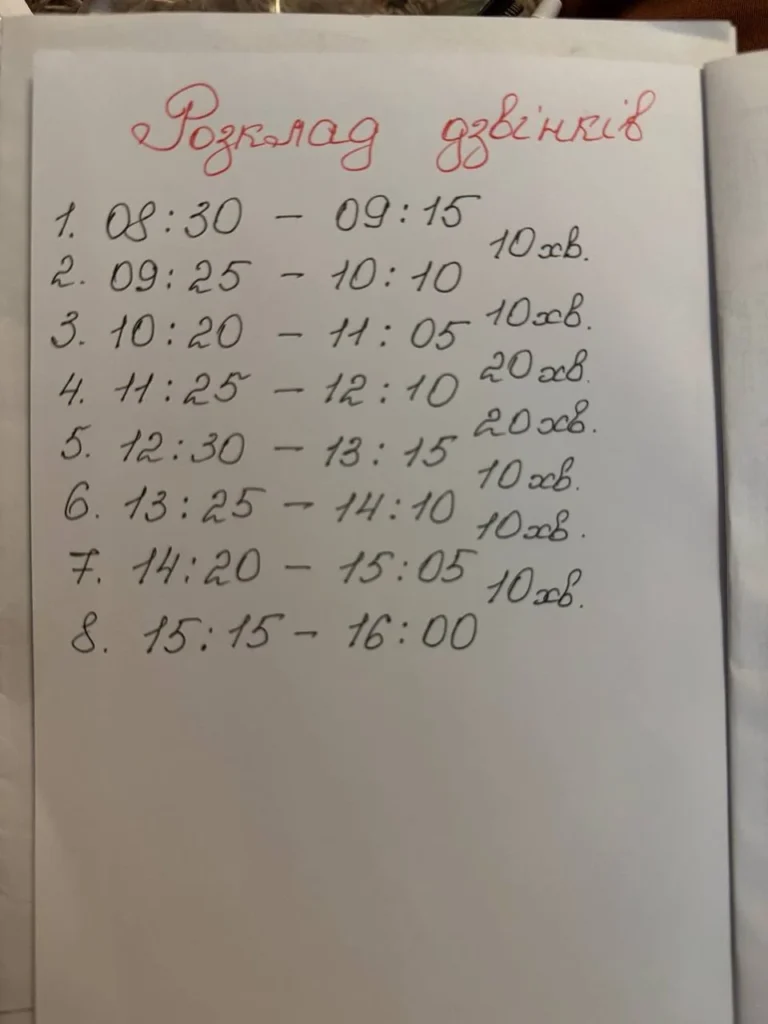 Розклад дзвінків
1. 08:30 – 09:15
10 хв.
2. 09:25 – 10:10
10 хв.
3. 10:20 – 11:05
20 хв.
4. 11:25 – 12:10
20 хв.
5. 12:30 – 13:15
10 хв.
6. 13:25 – 14:10
10 хв.
7. 14:20 – 15:05
10 хв.
8. 15:15 – 16:00